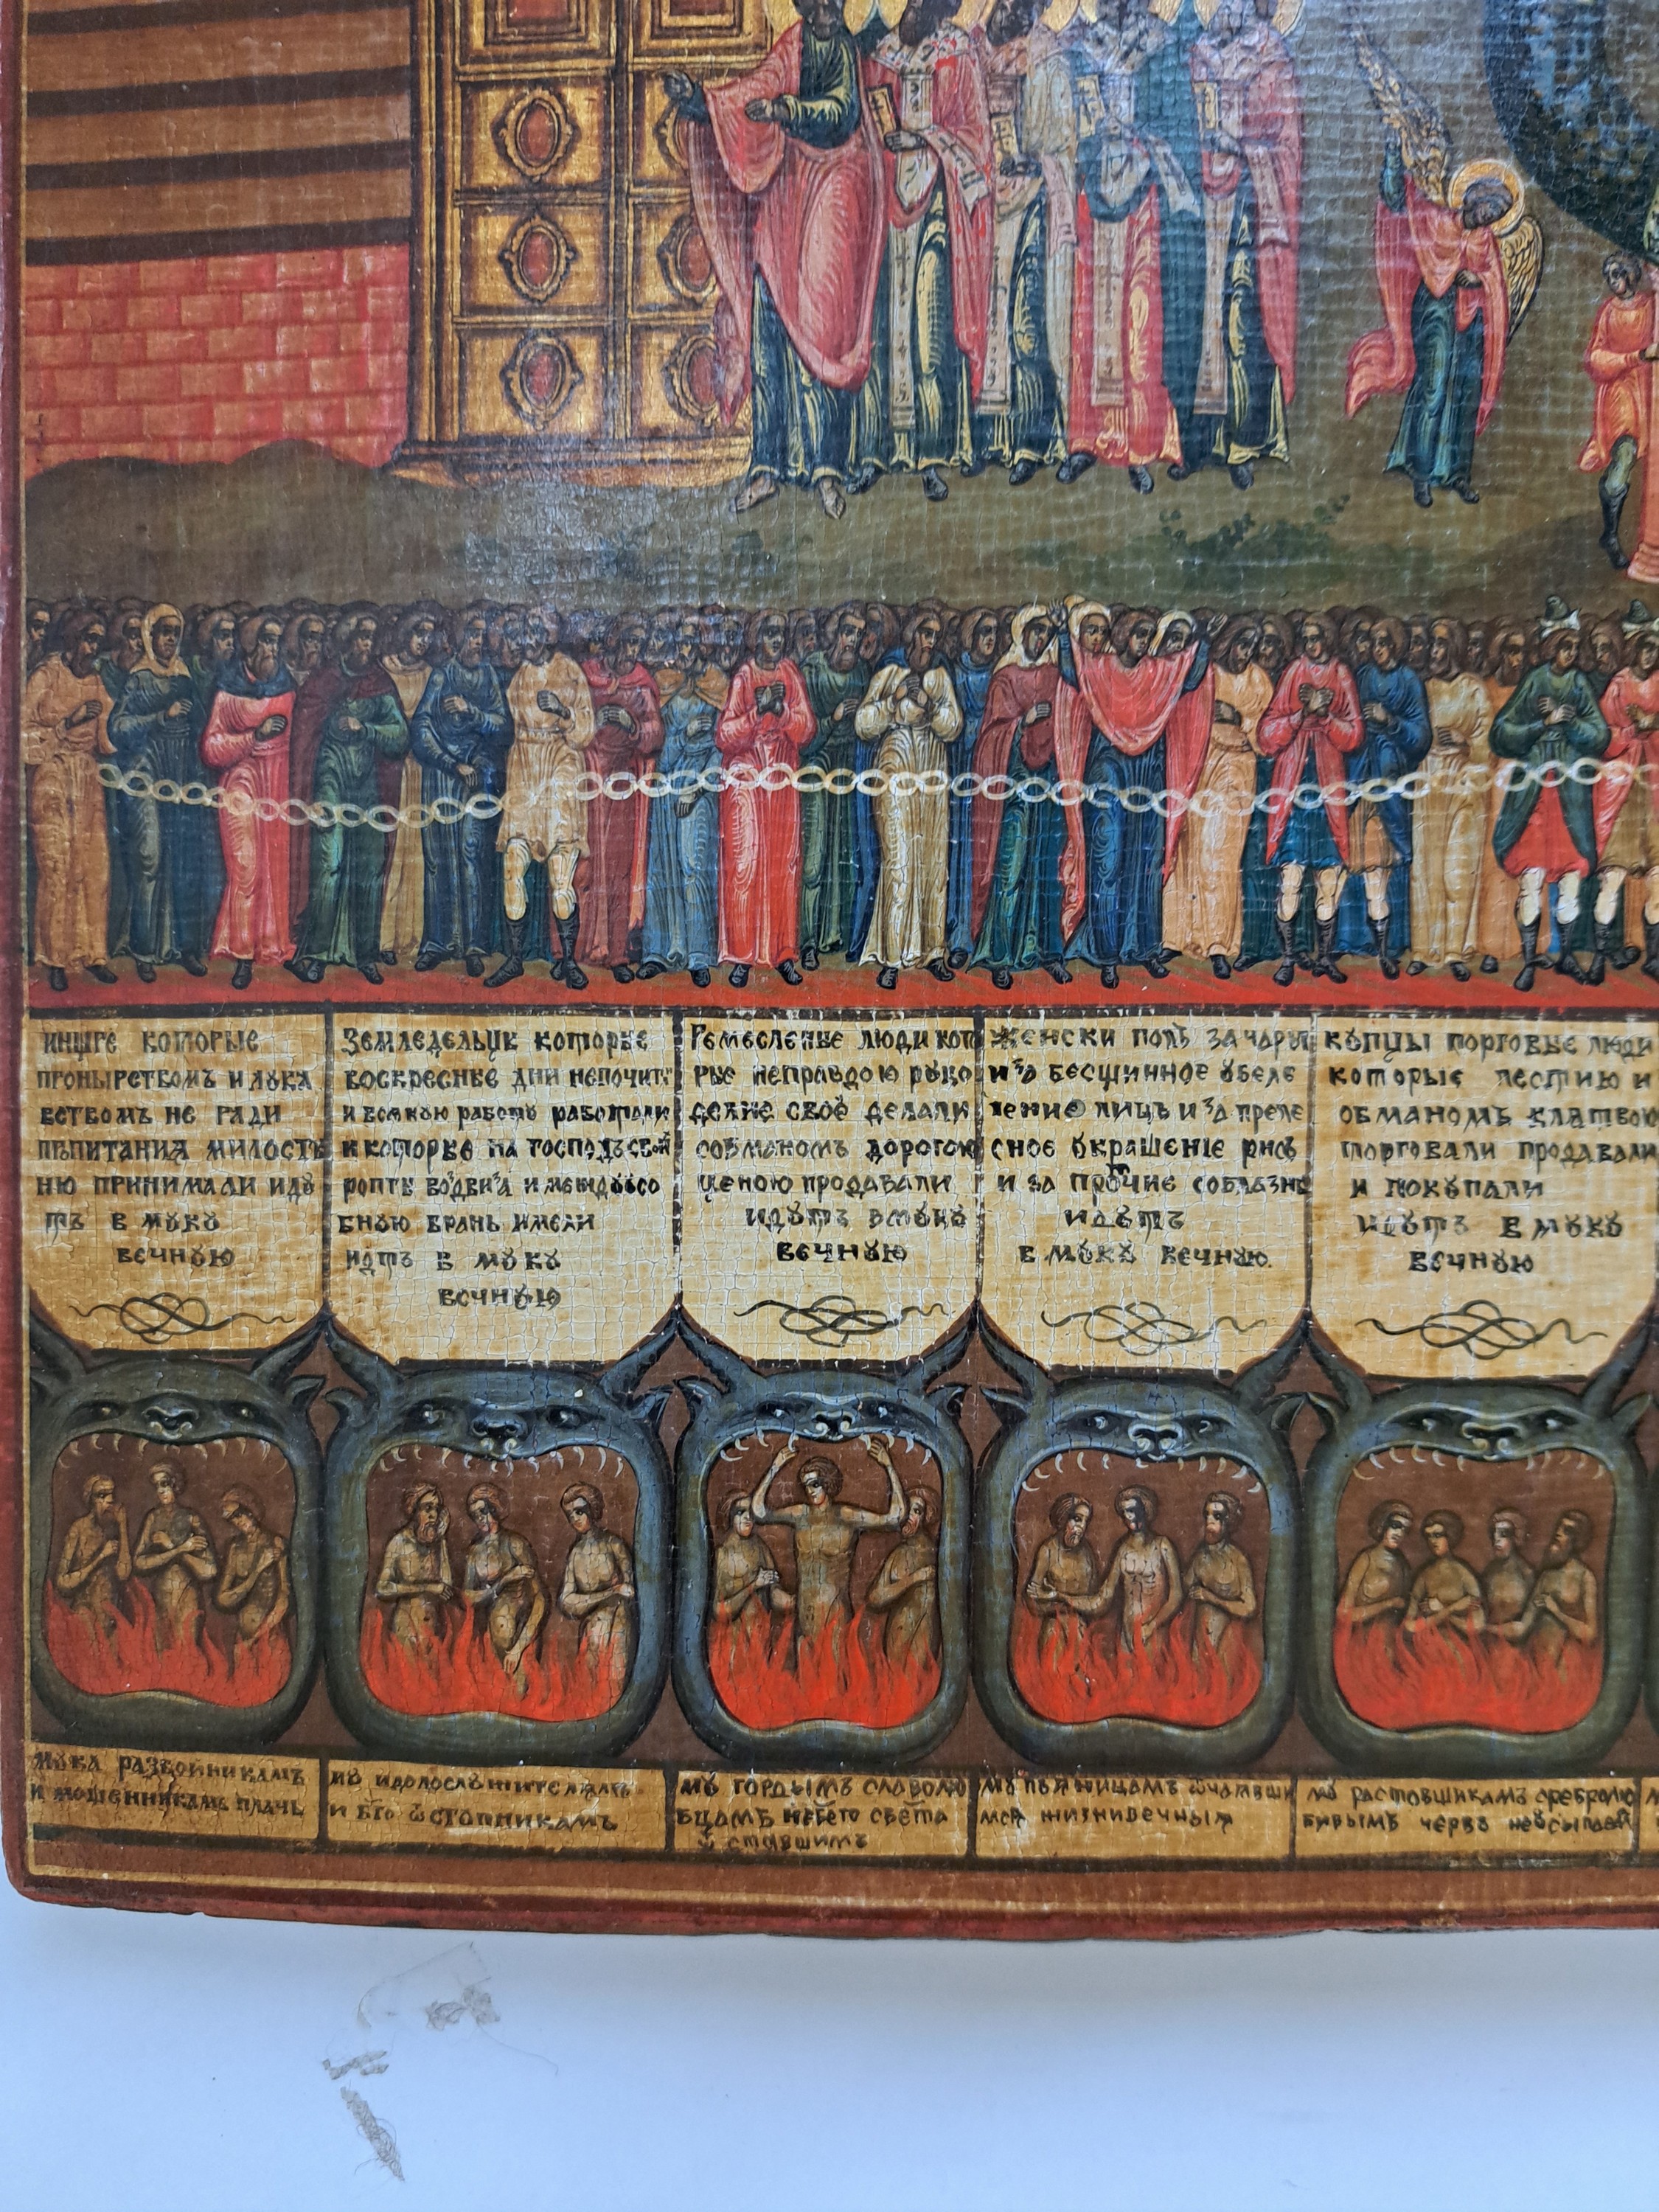 нищге которые
пронырствомъ и лука
вствомъ не ради
пѣпитания милость
ню принимали идꙋ
тъ в мꙋкꙋ
вечнꙋю
Земледельцы которые
воскресные дни непочит
и всякꙋю работꙋ работали
и которые на господъ свой
ропте
бнꙋю брань имели
идтъ в мꙋкꙋ
вечнꙋю
Ремесленые люди кото
рые неправдою рꙋко
делие своё делали
собманомъ дорогою
ценою продавали
идꙋтъ вмꙋкꙋ
вечнꙋю
Женски полъ за чары
и за бесщинное ꙋбеле
ление лицъ и за преле
сное ꙋкрашенıе ризъ
и за прочие соблазны
идꙋтъ
в мꙋкꙋ вечнꙋю
кꙋпцы торговые люди
которые лестию и
обманомъ клятвою
торговали продавали
и покꙋпали
идꙋтъ в мꙋкꙋ
вечнꙋю
мꙋка разбойникамъ
и мошенникамъ плачь
мꙋ идолослꙋжителямъ
и бг҃о ѿстꙋпникамъ
мꙋ гордымъ славолю
бцамъ небего света
ѿ ставшимъ
мꙋ пьяницамъ ѿчаявши
мся жизнивечныя
мꙋ растовщикамъ сребролю
бивымъ червь неꙋсыпаей